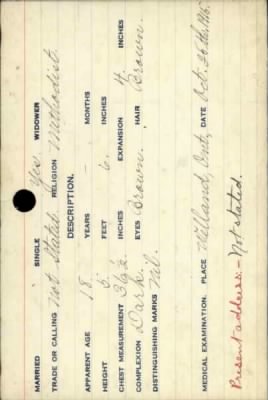 MARRIED SINGLE Yes WIDOWER
TRADE OR CALLING Not Stated. RELIGION Methodist.
DESCRIPTION.
APPARENT AGE 18 YEARS — MONTHS
HEIGHT 5 FEET 6. INCHES
CHEST MEASUREMENT 36½ INCHES EXPANSION 4 INCHES
COMPLEXION Dark. EYES Brown. HAIR Brown.
DISTINGUISHING MARKS Nil.
MEDICAL EXAMINATION. PLACE Welland, Ont. DATE Oct. 26th, 1915.
Present address:- Not stated.